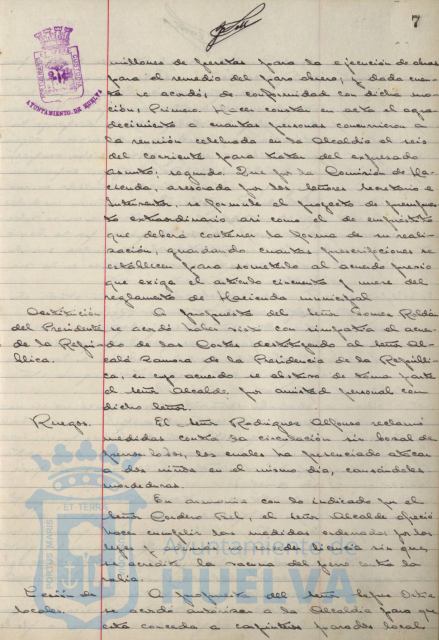 7
AYUNTAMIENTO DE HUELVA
millones de pesetas para la ejecución de obras
para el remedio del paro obrero; y dada cuen
ta se acordó, de conformidad con dicha mo
ción: Primero. Hacer constar en acta el agra
decimiento a cuantas personas concurrieron a
la reunión celebrada en la Alcaldía el seis
del corriente para tratar del expresado
asunto; segundo. Que por la Comisión de Ha
cienda, asesorada por los señores Secretario e
Interventor, se formule el proyecto de presupues
to extraordinario así como el de empréstito
que deberá contener la forma de su reali
zación, guardando cuantas prescripciones se
establecen para someterlo al acuerdo previo
que exige el artículo cincuenta y nueve del
reglamento de Hacienda municipal
Destitución
del Presidente
de la Repú
blica.
A propuesta del Señor Gomez Roldán
se acordó haber visto con simpatía el acuer
do de las Cortes destituyendo al señor Al
calá Zamora de la Presidencia de la Repúbli
ca, en cuyo acuerdo se abstuvo de tomar parte
el señor Alcalde, por amistad personal con
dicho señor.
Ruegos.
El señor Rodriguez Alfonso reclamó
medidas contra la circulación sin bozal de
perros, los cuales ha presenciado atacar
a dos niños en el mismo día, causándoles
mordeduras.
En armonía con lo indicado por el
señor Cordero, el señor Alcalde ofreció
hacer cumplir las medidas ordenadas por las
leyes y no conceder licencia sin que
se acredite la vacuna del perro contra la
rabia.
Cesión de
locales.
A propuesta del señor
se acordó autorizar a la Alcaldía para que
ceda a carpinteros parados local
ET TERRÆ
PORTUS MARIS
Ayuntamiento de
HUELVA